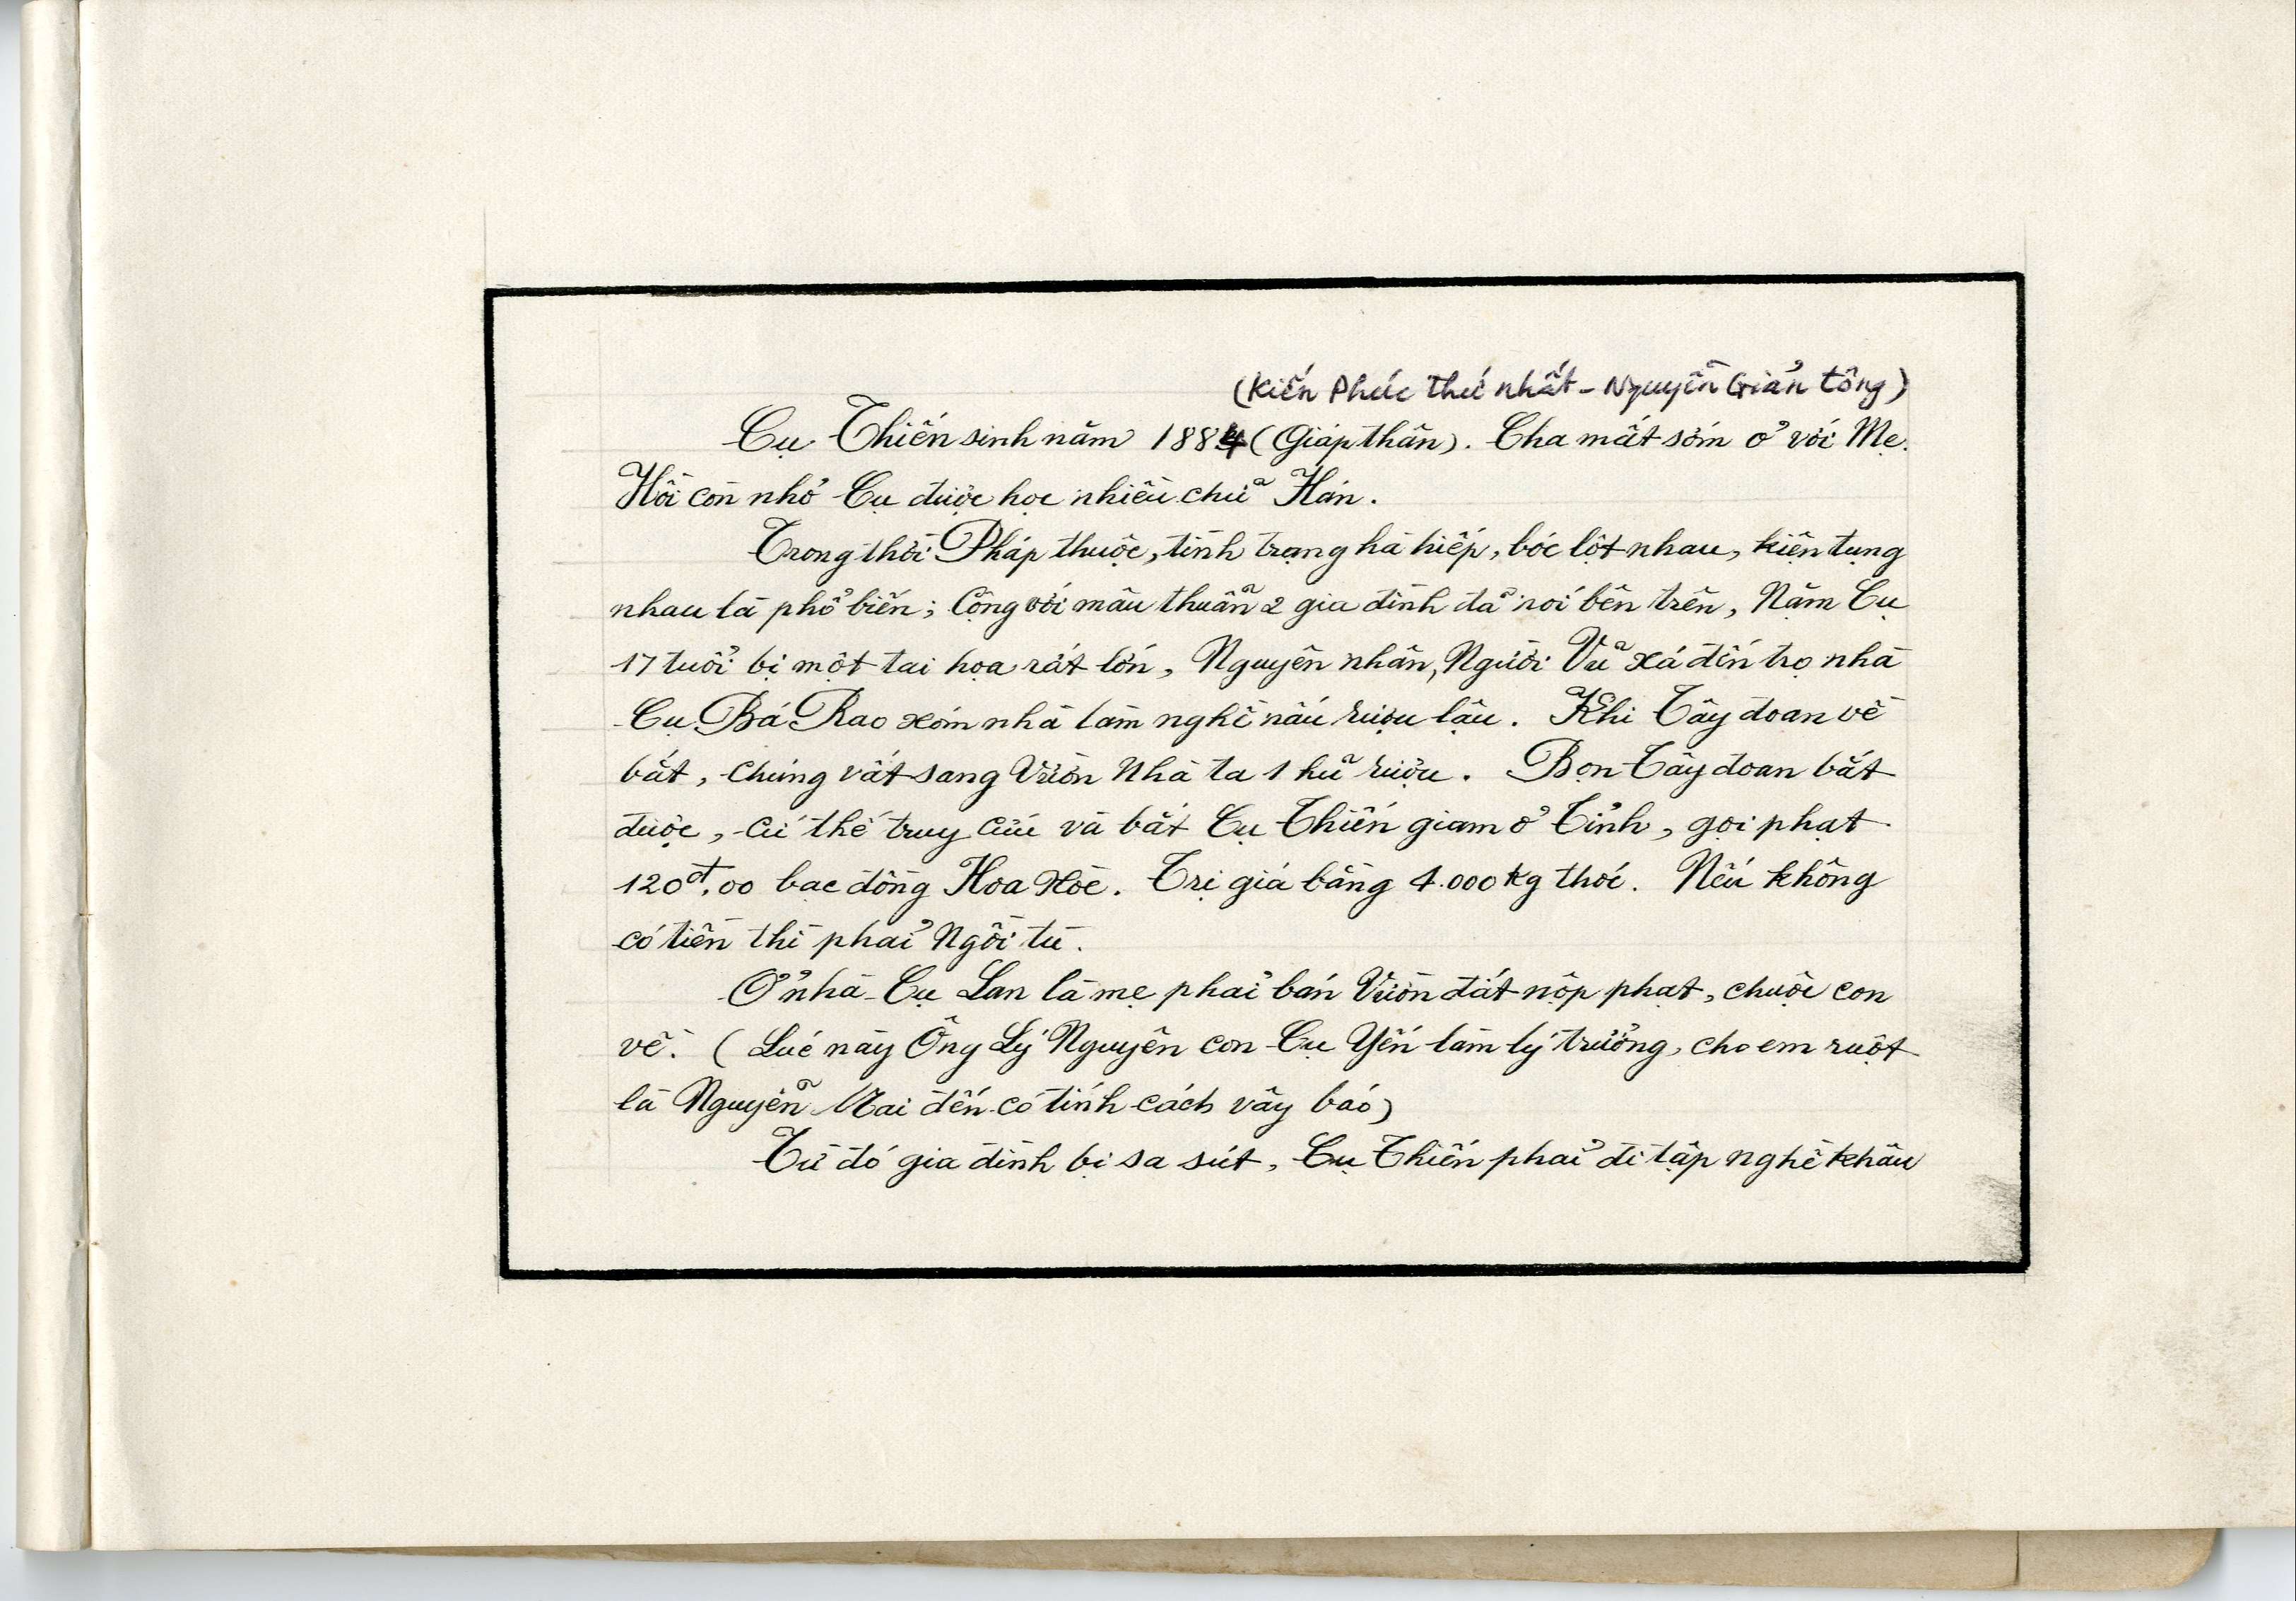 (Kiến Phúc thứ nhất - Nguyễn Giản tông)
Cụ Thiến sinh năm 1884 (Giáp thân). Cha mất sớm ở với Mẹ.
Hồi còn nhỏ Cụ được học nhiều chữ Hán.
Trong thời Pháp thuộc, tình trạng hà hiếp, bóc lột nhau, kiện tụng
nhau là phổ biến; Cộng với mâu thuẫn 2 gia đình đã nói bên trên, Năm Cụ
17 tuổi bị một tai họa rất lớn, Nguyên nhân, Người Vũ xá đến trọ nhà
Cụ Bá Rao xóm nhà làm nghề nấu rượu lậu. Khi Tây đoan về
bắt, chúng vất sang Vườn Nhà ta 1 hũ rượu. Bọn Tây đoan bắt
được, cứ thế truy cứu và bắt Cụ Thiến giam ở Tỉnh, gọi phạt
120đ,00 bạc đồng Hoa Xòe. Trị giá bằng 4.000 kg thóc. Nếu không
có tiền thì phải Ngồi tù.
Ở nhà Cụ Lan là mẹ phải bán Vườn đất nộp phạt, chuộc con
về. (Lúc này Ông Lý Nguyên con Cụ Yến làm lý trưởng, cho em ruột
là Nguyễn Mai đến có tính cách vây báo)
Từ đó gia đình bị sa sút, Cụ Thiến phải đi tập nghề khâu